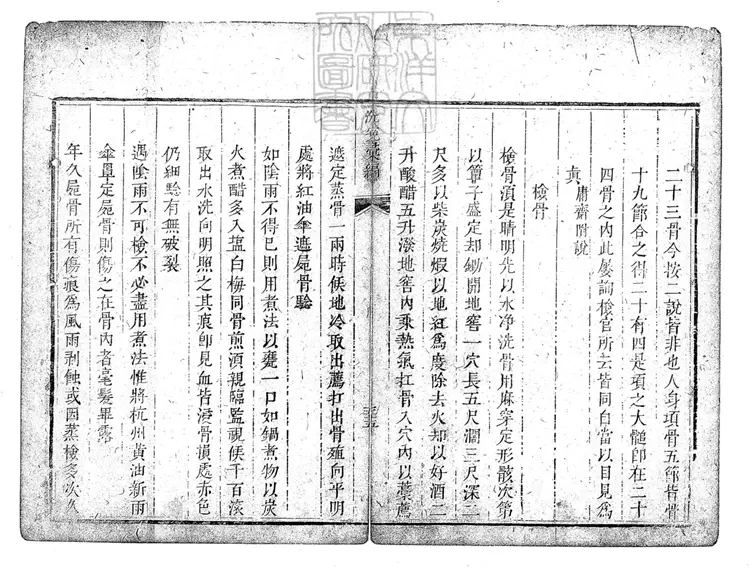 二十三骨今按二說皆非也人身項骨五節背骨
十九節合之得二十有四是項之大髓即在二十
四骨之內此屢詢檢官所云皆同自當以目見為
真庸齋附說
檢骨
檢骨須是晴明先以水净洗骨用麻穿定形骸次第
以簟子盛定却鋤開地窖一穴長五尺濶三尺深二
尺多以柴炭燒煅以地紅為度除去火却以好酒二
升酸醋五升潑地窖內乘熱氣扛骨入穴內以藁薦
遮定蒸骨一兩時候地冷取出薦扛出骨殖向平明
處將紅油傘遮屍骨驗
如陰雨不得已則用煮法以甕一口如鍋煮物以炭
火煮醋多入鹽白梅同骨煎須親臨監視候千百滾
取出水洗向明照之其痕即見血皆浸骨損處赤色
仍細驗有無破裂
遇陰雨不可檢不必盡用煮法惟將杭州黄油新雨
傘罩定屍骨則傷之在骨內者毫髮畢露
年久屍骨所有傷痕為風雨剥蝕或因蒸檢多次久